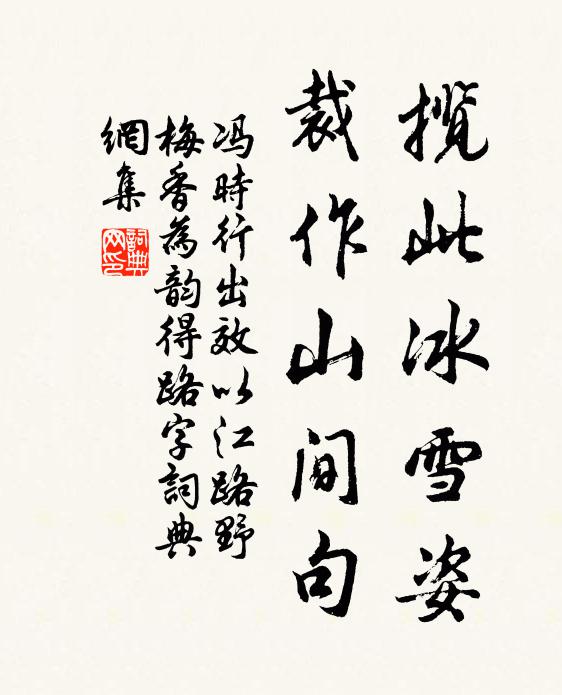 攬此冰雪姿
裁作山間句
冯時行出效以江路野
梅香為韵得路字詞典
網集
詞典
网印